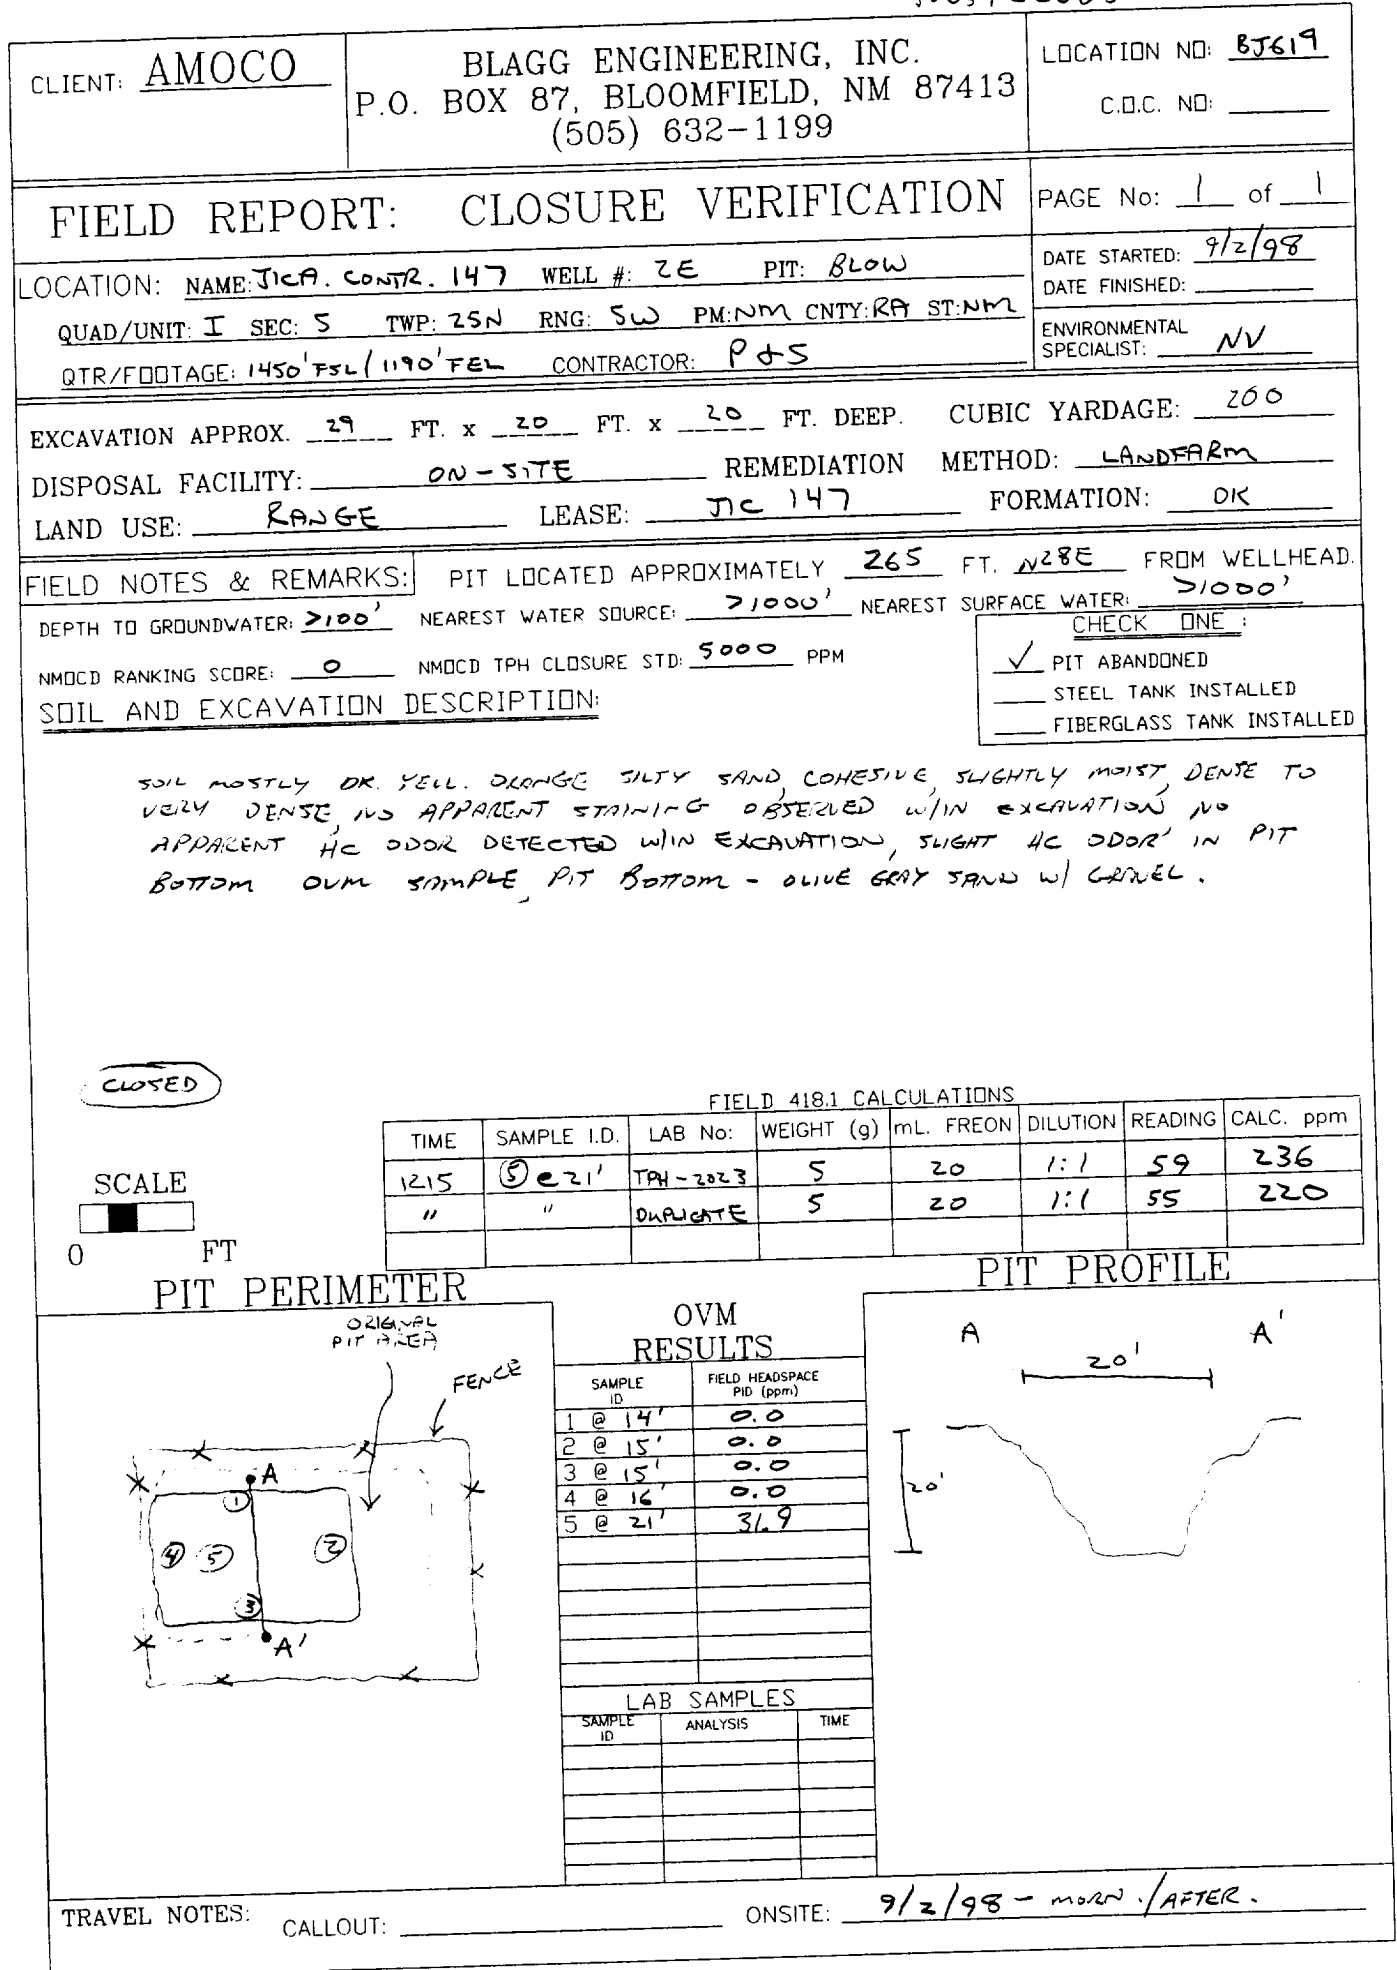 CLIENT: AMOCO
BLAGG ENGINEERING, INC.
P.O. BOX 87, BLOOMFIELD, NM 87413
(505) 632-1199
LOCATION NO: BJ619
C.O.C. NO:
FIELD REPORT: CLOSURE VERIFICATION
PAGE No: 1 of 1
LOCATION: NAME: JICA. CONTR. 147 WELL #: 2E PIT: BLOW
QUAD/UNIT: I SEC: 5 TWP: 25N RNG: 5W PM: NM CNTY: RA ST: NM
QTR/FOOTAGE: 1450'FSL/1190'FEL CONTRACTOR: P&S
DATE STARTED: 9/2/98
DATE FINISHED:
ENVIRONMENTAL
SPECIALIST: NV
EXCAVATION APPROX. 29 FT. x 20 FT. x 20 FT. DEEP. CUBIC YARDAGE: 200
DISPOSAL FACILITY: ON-SITE REMEDIATION METHOD: LANDFARM
LAND USE: RANGE LEASE: JIC 147 FORMATION: DK
FIELD NOTES & REMARKS: PIT LOCATED APPROXIMATELY 265 FT. N28E FROM WELLHEAD.
DEPTH TO GROUNDWATER: >100' NEAREST WATER SOURCE: >1000' NEAREST SURFACE WATER: >1000'
NMOCD RANKING SCORE: 0 NMOCD TPH CLOSURE STD: 5000 PPM
CHECK ONE :
✓ PIT ABANDONED
STEEL TANK INSTALLED
FIBERGLASS TANK INSTALLED
SOIL AND EXCAVATION DESCRIPTION:
SOIL MOSTLY DK. YELL. ORANGE SILTY SAND, COHESIVE, SLIGHTLY MOIST, DENSE TO
VERY DENSE, NO APPARENT STAINING OBSERVED W/IN EXCAVATION, NO
APPARENT HC ODOR DETECTED W/IN EXCAVATION, SLIGHT HC ODOR IN PIT
BOTTOM OVM SAMPLE, PIT BOTTOM - OLIVE GRAY SAND W/ GRAVEL.
CLOSED
FIELD 418.1 CALCULATIONS
TIME SAMPLE I.D. LAB No: WEIGHT (g) mL. FREON DILUTION READING CALC. ppm
1215 ⑤ @ 21' TPH-2023 5 20 1:1 59 236
" " DUPLICATE 5 20 1:1 55 220
SCALE
0 FT
PIT PERIMETER
ORIGINAL
PIT AREA
FENCE
A
①
④ ⑤ ②
③
A'
OVM
RESULTS
SAMPLE ID FIELD HEADSPACE PID (ppm)
1 @ 14' 0.0
2 @ 15' 0.0
3 @ 15' 0.0
4 @ 16' 0.0
5 @ 21' 31.9
LAB SAMPLES
SAMPLE ID ANALYSIS TIME
PIT PROFILE
A A'
20'
20'
TRAVEL NOTES: CALLOUT: ONSITE: 9/2/98 - MORN./AFTER.